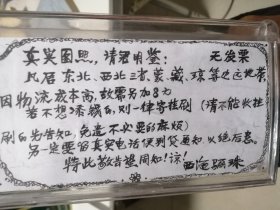 真实图照，请君明鉴： 无疫票
凡居东北、西北三省、蒙、藏、琼等边远地带
因物流成本高，故需另加8元
若不想添钱的，则一律寄挂刷（请不能收挂
刷的先告知，免造不必要的麻烦）
另一定要留真实电话便利货通知，以绝后患。
特此敬告望周知！谅！ 西沧骊珠